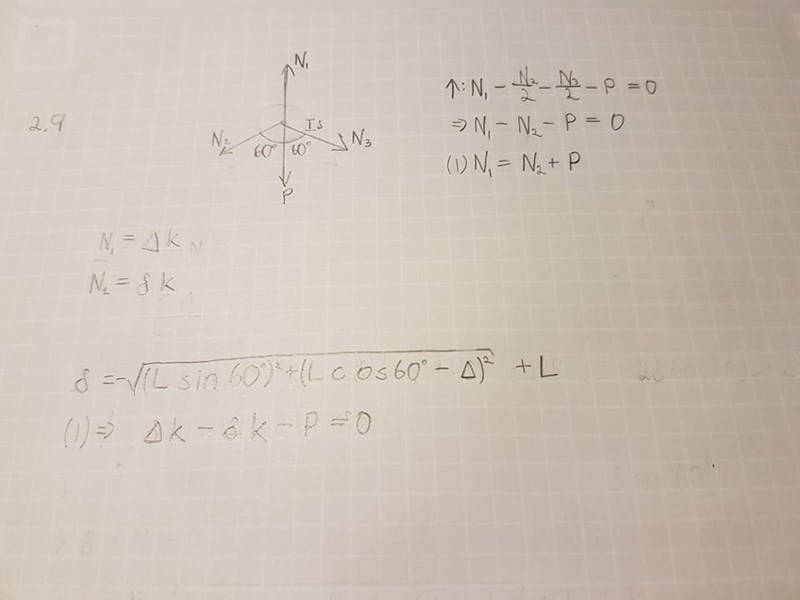 2.9
N₁
N₂
60°
60°
N₃
P
↑: N₁ - N₂/2 - N₃/2 - P = 0
⇒ N₁ - N₂ - P = 0
(1) N₁ = N₂ + P
N₁ = Δk
N₂ = δk
δ = -√((L sin 60°)² + (L cos 60° - Δ)²) + L
(1) ⇒ Δk - δk - P = 0